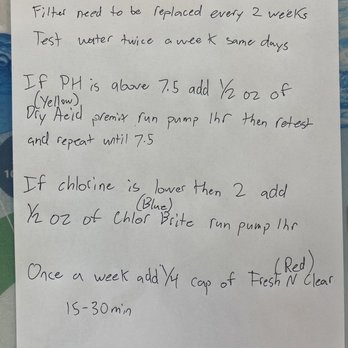 Filter need to be replaced every 2 weeks
Test water twice a week same days
If PH is above 7.5 add 1/2 oz of
(Yellow)
Dry Acid premix run pump 1hr then retest
and repeat until 7.5
If chlorine is lower then 2 add
(Blue)
1/2 oz of Chlor Brite run pump 1hr
(Red)
Once a week add 1/4 cap of Fresh N Clear
15-30min